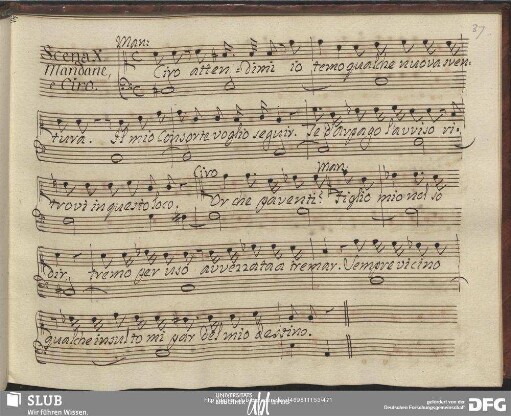 37
Man:
Scena X
Mandane,
e Ciro.
Ciro attendimi io temo qualche nuova sven-
tura. Il mio Consorte voglio seguir. Te d'Arpago l'avviso ri-
trovi in questo loco.
Ciro
Or che paventi?
Man:
Figlio mio nol so
dir, tremo per uso avvezzata a tremar. Sempre vicino
qualche insulto mi par del mio destino.
SLUB
Wir führen Wissen.
UNIVERSITÄTS
gefördert von der
Deutschen Forschungsgemeinschaft
DFG